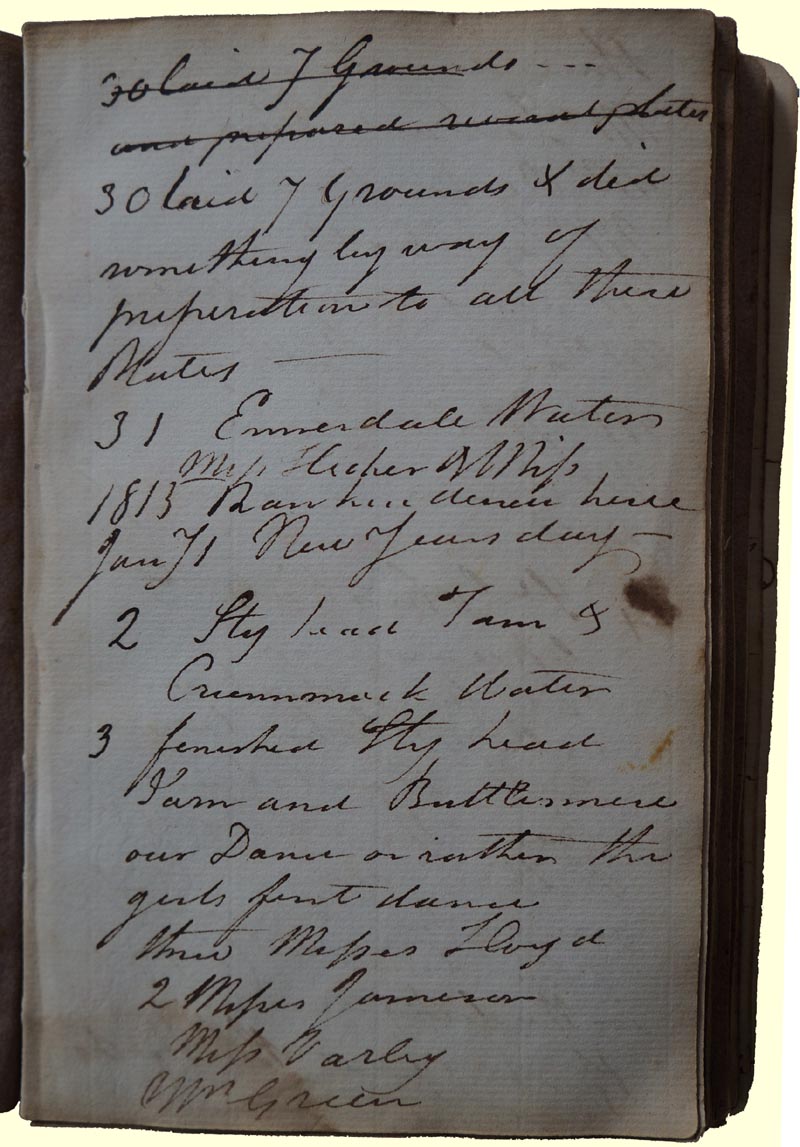 30 laid 7 Grounds - - -
and prepared several plates
30 laid 7 Grounds & did
something by way of
preparation to all these
Plates —
31 Ennerdale Water
Miss & Miss
1813 here
Jany 1 New Years day —
2 Sty head Tarn &
Crummock Water
3 finished Sty head
Tarn and Buttermere
our Dance or rather the
girls first dance
three Misses Lloyd
2 Misses Jameson
Miss Varley
Wm Green